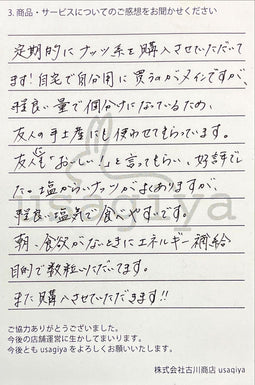 3. 商品・サービスについてのご感想をお聞かせください
定期的にナッツ系を購入させていただいて
ます！自宅で自分用に買うのがメインですが、
程良い量で個分けになっているため、
友人の手土産にも使わせてもらっています。
友人にも「おいしい！」と言ってもらい、好評でし
た。塩からいナッツがよくありますが、
程良い塩気で食べやすいです。
朝、食欲がないときにエネルギー補給
目的で数粒いただいてます。
また購入させていただきます!!
usagiya
ご協力ありがとうございました。
今後の店舗運営に生かしてまいります。
今後とも usagiya をよろしくお願いいたします。
株式会社古川商店 usagiya